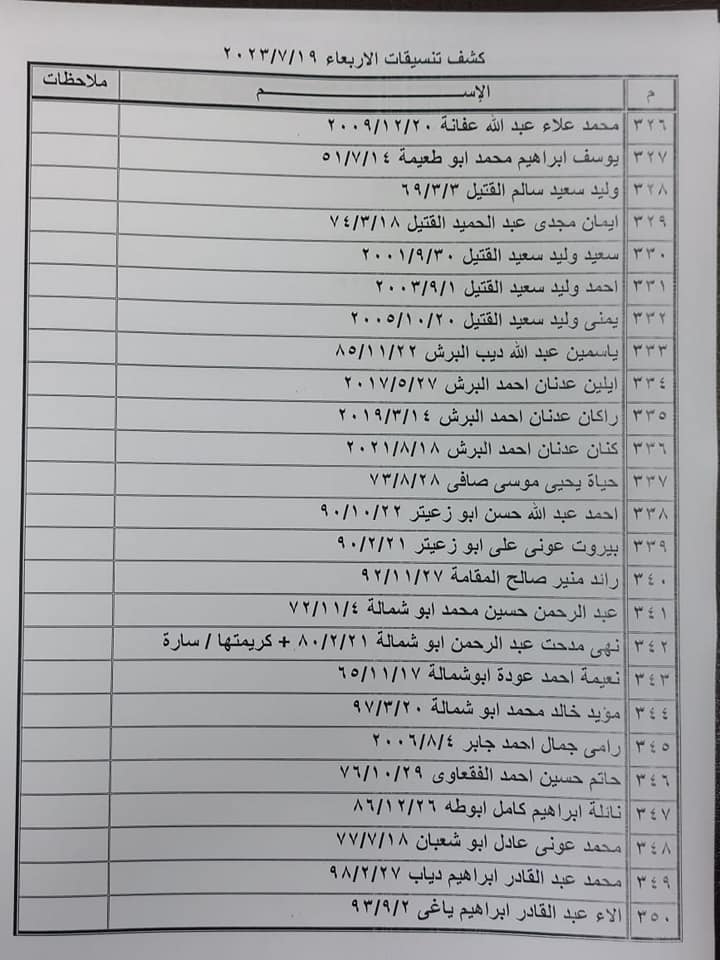 كشف تنسيقات الاربعاء ٢٠٢٣/٧/١٩
م الإســـــــــم ملاحظات
٣٢٦ محمد علاء عبد الله عفانة ٢٠٠٩/١٢/٢٠
٣٢٧ يوسف ابراهيم محمد ابو طعيمة ٥١/٧/١٤
٣٢٨ وليد سعيد سالم القتيل ٦٩/٣/٣
٣٢٩ ايمان مجدى عبد الحميد القتيل ٧٤/٣/١٨
٣٣٠ سعيد وليد سعيد القتيل ٢٠٠١/٩/٣٠
٣٣١ احمد وليد سعيد القتيل ٢٠٠٣/٩/١
٣٣٢ يمنى وليد سعيد القتيل ٢٠٠٥/١٠/٢٠
٣٣٣ ياسمين عبد الله ديب البرش ٨٥/١١/٢٢
٣٣٤ ايلين عدنان احمد البرش ٢٠١٧/٥/٢٧
٣٣٥ راكان عدنان احمد البرش ٢٠١٩/٣/١٤
٣٣٦ كنان عدنان احمد البرش ٢٠٢١/٨/١٨
٣٣٧ حياة يحيى موسى صافى ٧٣/٨/٢٨
٣٣٨ احمد عبد الله حسن ابو زعيتر ٩٠/١٠/٢٢
٣٣٩ بيروت عونى على ابو زعيتر ٩٠/٢/٢١
٣٤٠ رائد منير صالح المقامة ٩٢/١١/٢٧
٣٤١ عبد الرحمن حسين محمد ابو شمالة ٧٢/١١/٤
٣٤٢ نهى مدحت عبد الرحمن ابو شمالة ٨٠/٢/٢١ + كريمتها / سارة
٣٤٣ نعيمة احمد عودة ابوشمالة ٦٥/١١/١٧
٣٤٤ مؤيد خالد محمد ابو شمالة ٩٧/٣/٢٠
٣٤٥ رامى جمال احمد جابر ٢٠٠٦/٨/٤
٣٤٦ حاتم حسين احمد الفقعاوى ٧٦/١٠/٢٩
٣٤٧ نائلة ابراهيم كامل ابوطه ٨٦/١٢/٢٦
٣٤٨ محمد عونى عادل ابو شعبان ٧٧/٧/١٨
٣٤٩ محمد عبد القادر ابراهيم دياب ٩٨/٢/٢٧
٣٥٠ الاء عبد القادر ابراهيم ياغى ٩٣/٩/٢